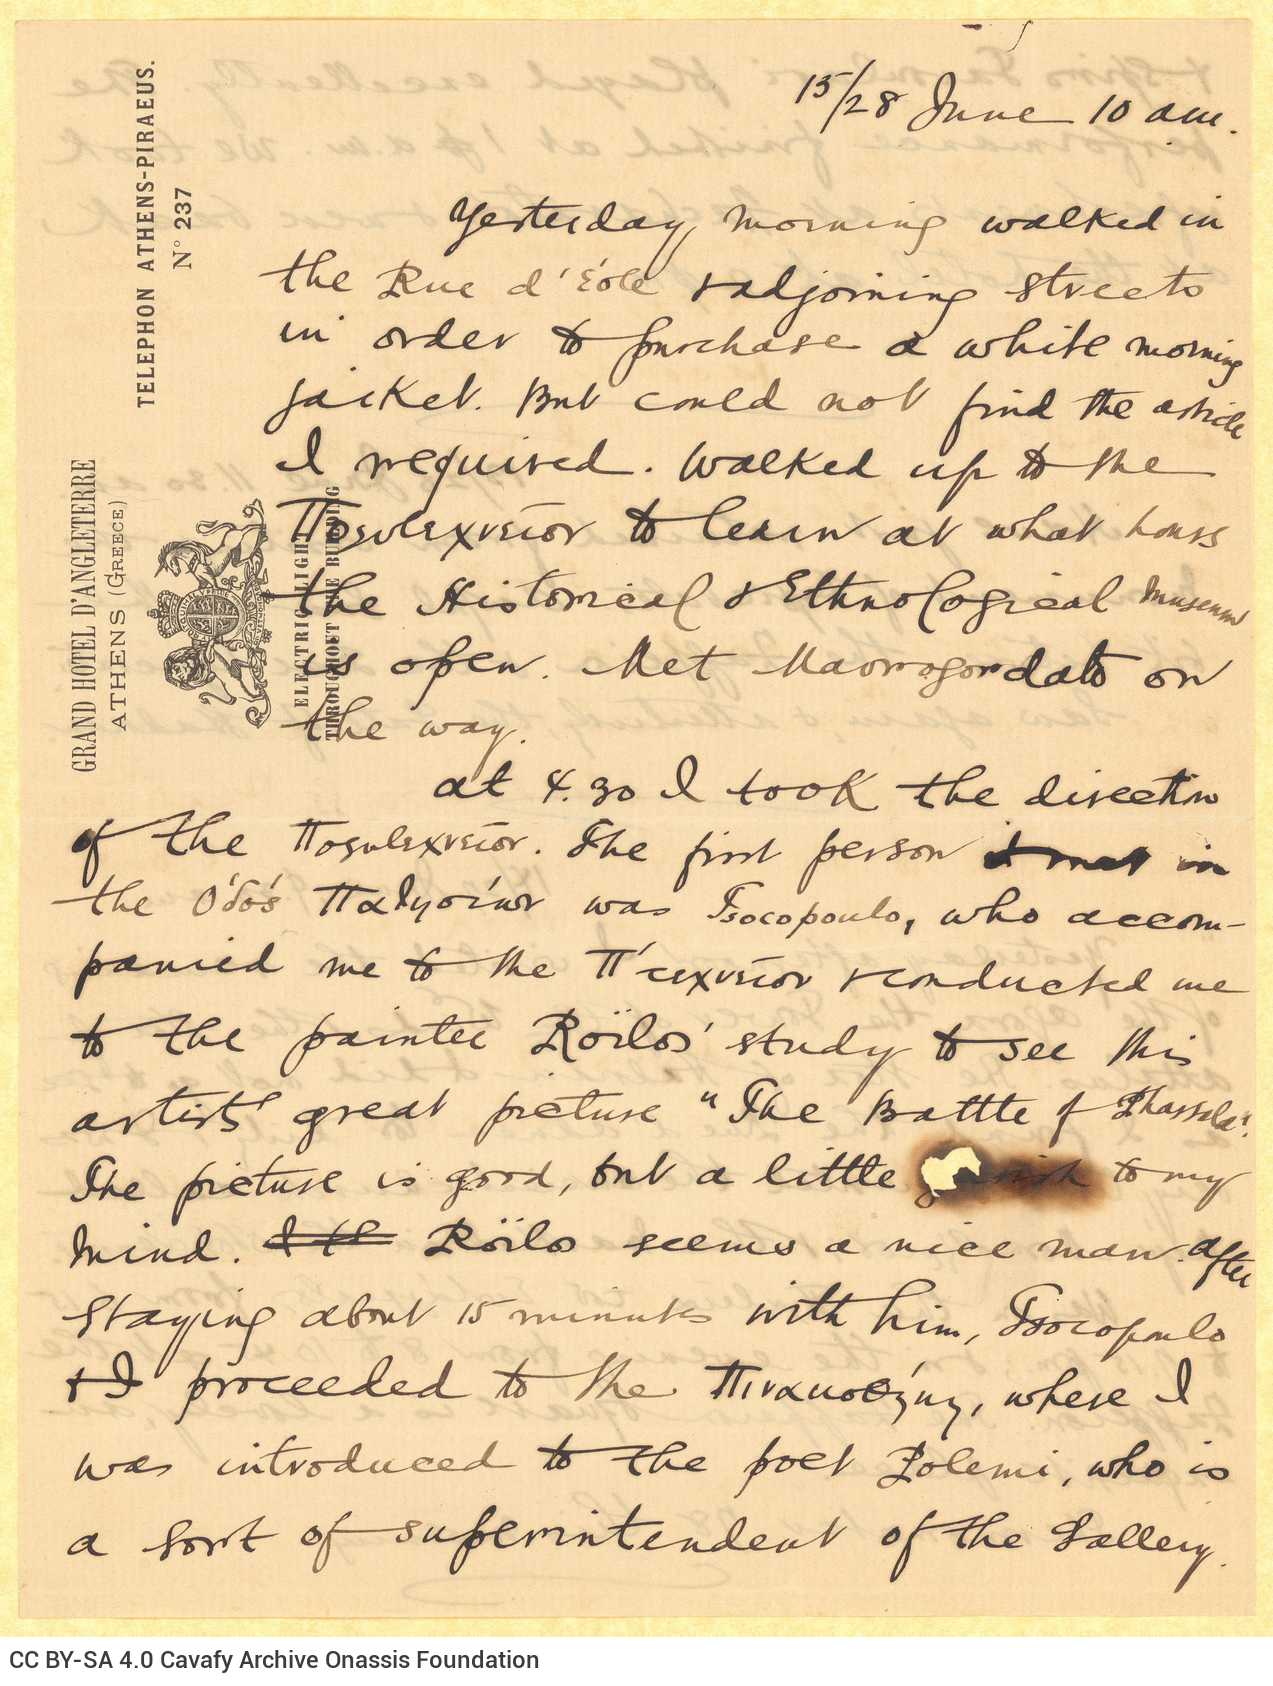 TELEPHON ATHENS-PIRAEUS.
N° 237
GRAND HOTEL D'ANGLETERRE
ATHENS (GREECE)
ELECTRIC LIGHT
THROUGHOUT THE BUILDING
15/28 June 10 am.
Yesterday morning walked in
the Rue d'Éole & adjoining streets
in order to purchase a white morning
jacket. But could not find the article
I required. Walked up to the
Πολυτεχνείον to learn at what hours
the Historical & Ethnological Museum
is open. Met Mavrogordato on
the way.
At 4.30 I took the direction
of the Πολυτεχνείον. The first person I met in
the Οδός Πατησίων was Tsocopoulo, who accom-
panied me to the Π'τεχνείον & conducted me
to the painter Roïlos' study to see this
artist's great picture "The Battle of Pharsala".
The picture is good, but a little to my
mind. I th Roïlo seems a nice man. After
staying about 15 minutes with him, Tsocopoulo
& I proceeded to the Πινακοθήκη, where I
was introduced to the poet Polemi, who is
a sort of superintendent of the Gallery.
CC BY-SA 4.0 Cavafy Archive Onassis Foundation